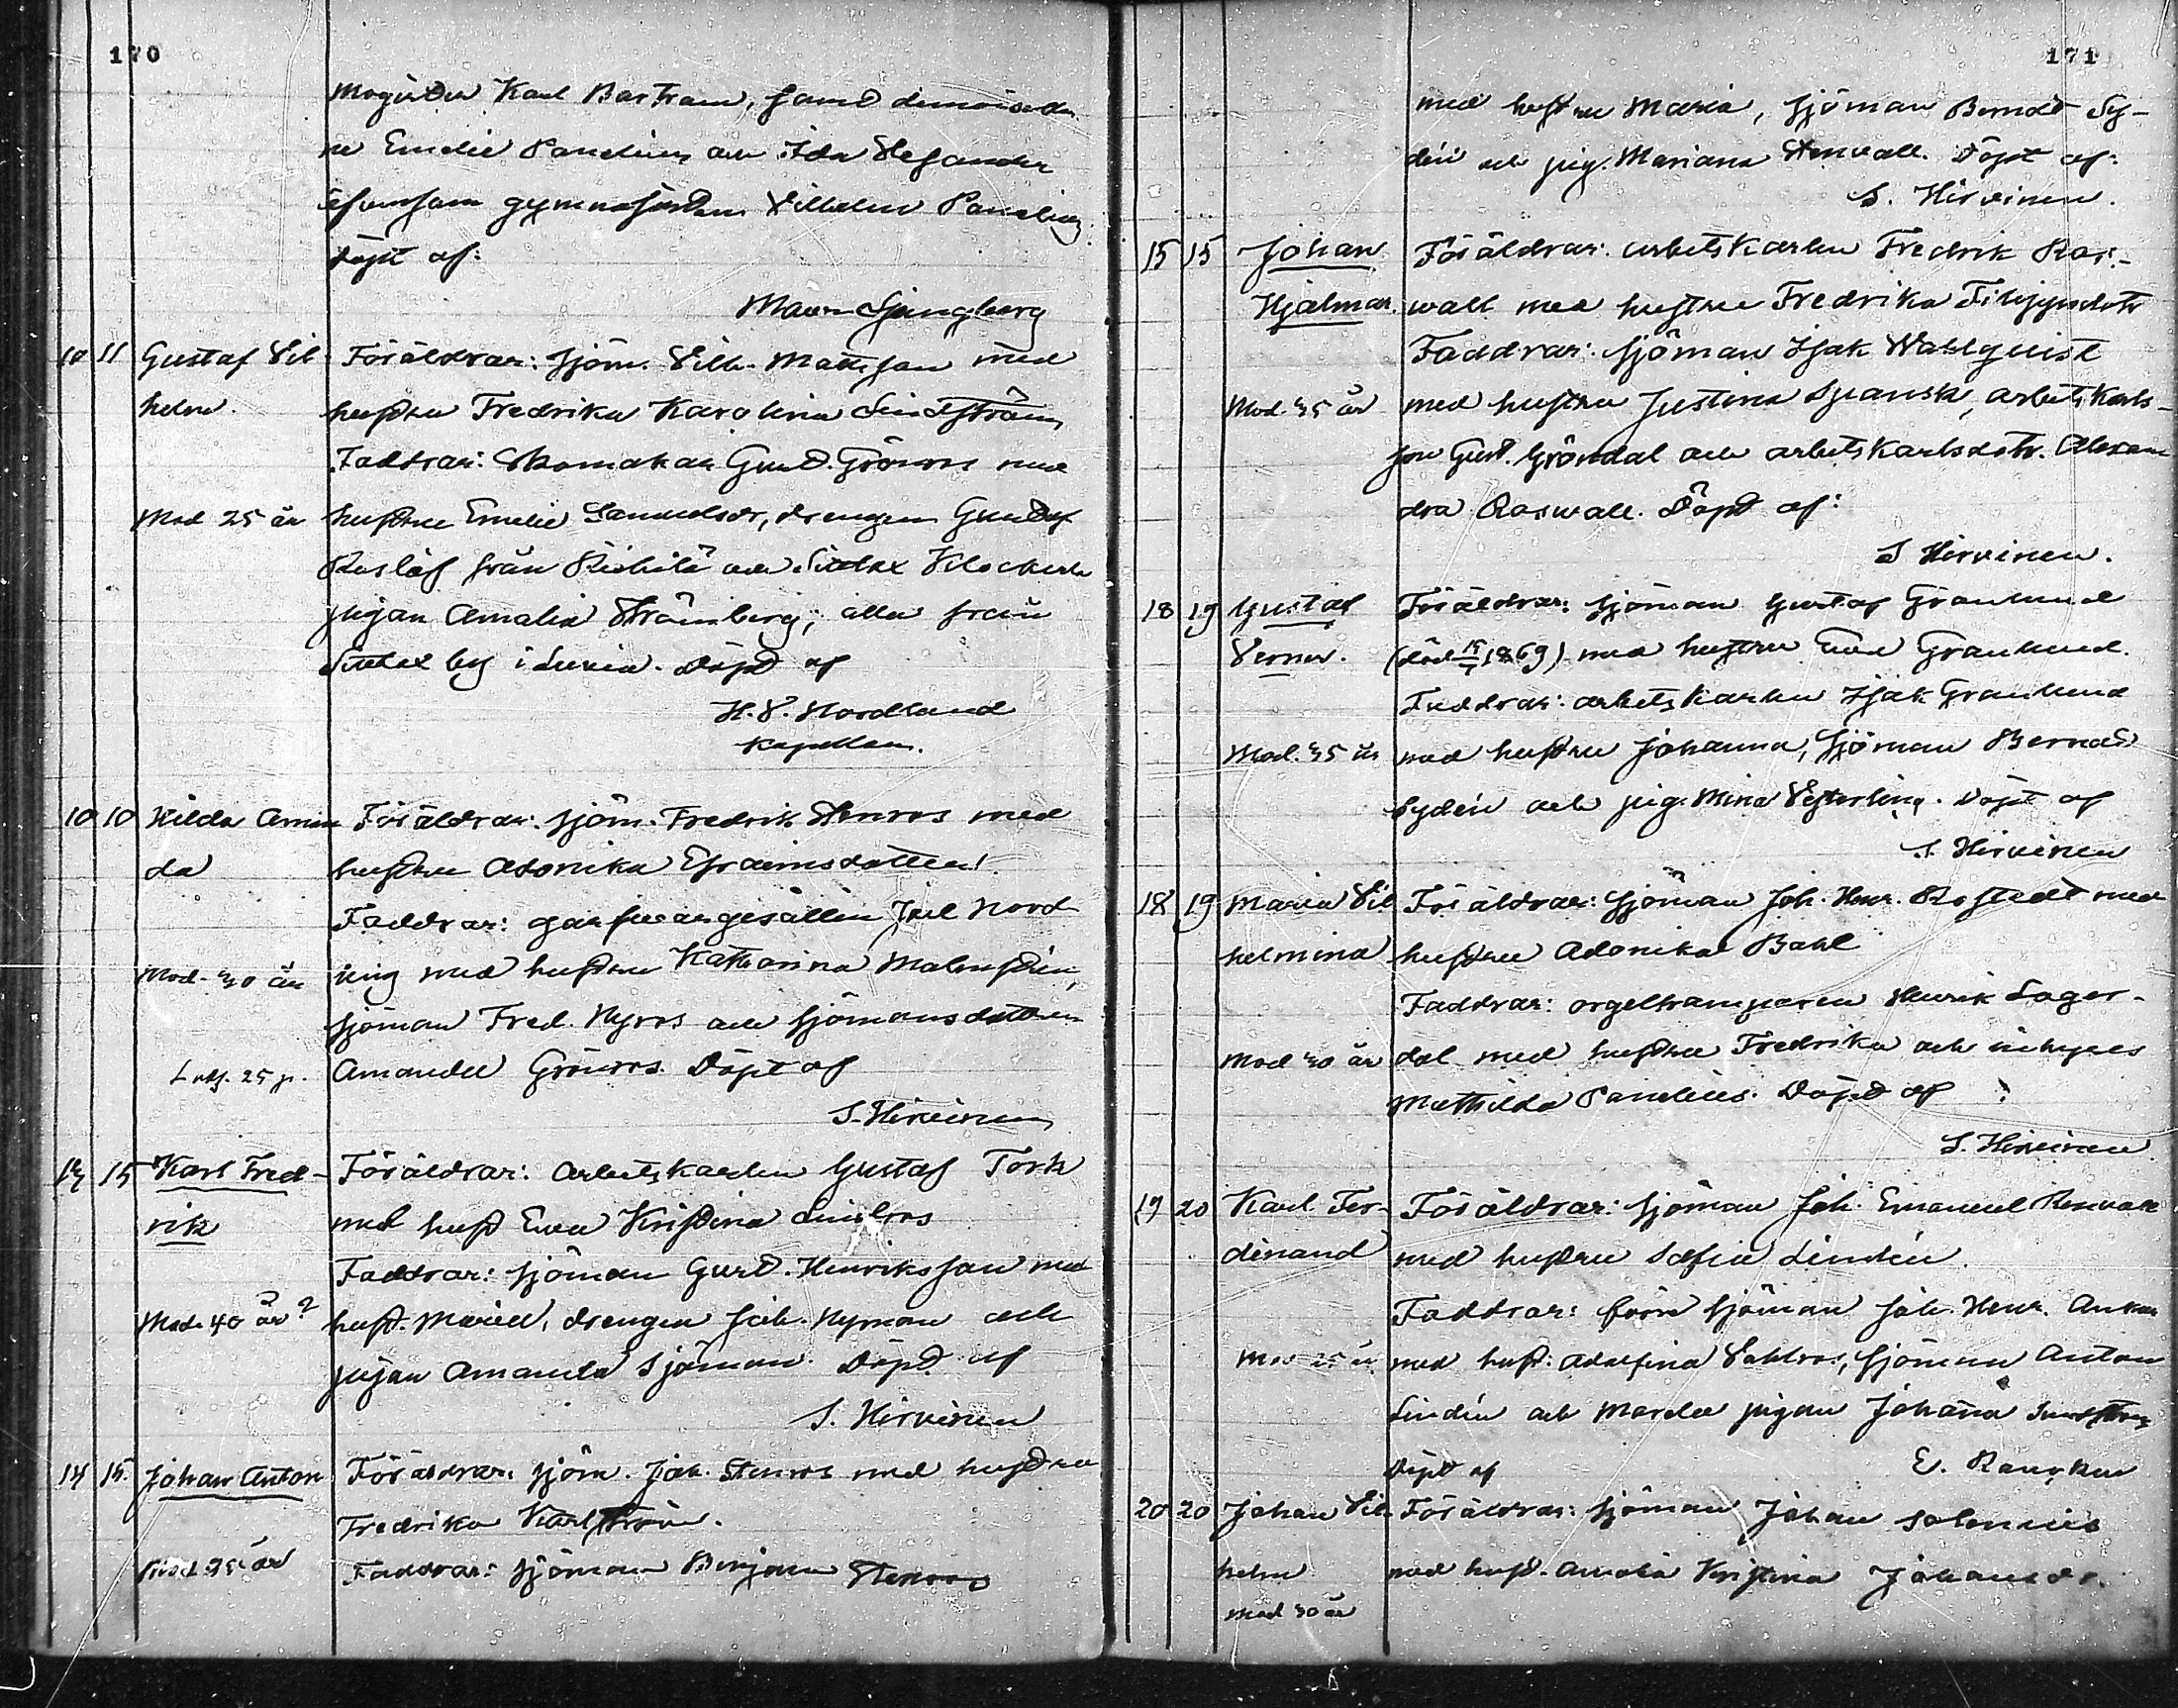 170
Magister Karl Bartram, samt demoiseller
ne Emelie Pandelius och Ida Hesander
äfvensom gymnasisten Vilhelm Pandelius
Döpt af:
Ljungberg
10 11 Gustaf Vil Föräldrar: sjöm. Vilh. Mattsson med
helm. hustru Fredrika Karolina Lindström
Faddrar: Skomakar Gust. Grönros med
Mod 25 år hustru Emelie Samuelsdr, drengen Gustaf
Roslöf från och Klockare
pigan Amalia Strömberg; alla från
by i Luvia. Döpt af
H. V. Nordlund
Kapellan.
10 10 Hilda Aman Föräldrar: sjöm. Fredrik Stenros med
da hustru Adonika Efraimsdotter.
Faddrar: garfvaregesällen Joel Nord
Mod. 30 år ling med hustru Katharina Malmstén,
sjöman Fred. Nyros och sjömansdottern
25 p. Amanda Grönros. Döpt af
S. Hirvinen
13 15 Karl Fred- Föräldrar: Arbetskarlen Gustaf Tork
rik med hust Eva Kristina Lindros
Faddrar: sjöman Gust. Henriksson med
Mod. 40 år? hust. Maria, drengen Joh. Nyman och
pigan Amanda Sjöman. Döpt af
S. Hirvinen
14 15. Johan Anton Föräldrar: sjöm. Joh. Stenros med hustru
Fredrika Karlström.
Mod 35 år Faddrar: sjöman Benjam Stenros
171
med hustru Maria, sjöman Berndt Sy-
dén och pig. Mariana Stenvall. Döpt af:
S. Hirvinen.
15 15 Johan Föräldrar: arbetskarlen Fredrik Ros-
Hjalmar. wall med hustru Fredrika Filippsdotr
Faddrar: sjöman Isak Wahlquist
Mod. 35 år med hustru Justina Spansk, arbetskarls-
son Gust. Gröndal och arbetskarlsdotr. Alexan
dra Roswall. Döpt af:
S Hirvinen.
18 19 Gustaf Föräldrar: sjöman Gustaf Granlund
Verner. (död 1869) med hustru Eva Granlund.
Faddrar: arbetskarlen Isak Granlund
Mod. 35 år med hustru Johanna, sjöman Berndt
Sydén och pig. Mina Vesterling. Döpt af
S. Hirvinen
18 19 Maria Vil Föräldrar: sjöman Joh. Henr. Rostedt med
helmina hustru Adonika Bahl
Faddrar: orgeltramparen Henrik Lager-
Mod 30 år dal med hustru Fredrika och inhyses
Mathilda Pandelius. Döpt af
S. Hirvinen
19 20 Karl Fer- Föräldrar: sjöman Joh. Emanuel Renvall
dinand med hustru Sofia Lindén.
Faddrar: förre sjöman Joh. Henr. Ankar
Mod 25 år med hust. Adolfina Vahlros, sjöman Anton
Lindén och pigan Johanna Sundström
Döpt af E. Rancken
20 20 Johan Vil Föräldrar: sjöman Johan Salenius
helm med hust. Amalia Kristina Johansdr.
mod 30 år